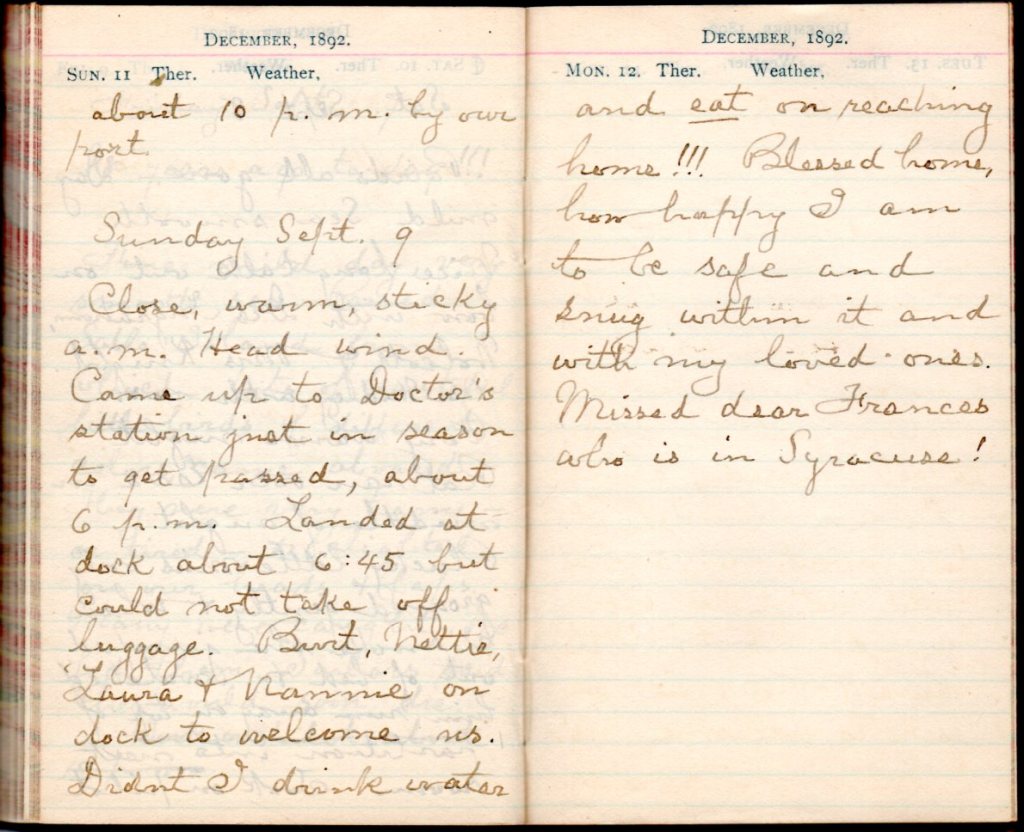 DECEMBER, 1892.
SUN. 11 Ther. Weather,
about 10 p. m. by our
port.
Sunday Sept. 9
Close, warm, sticky
a.m. Head wind.
Came up to Doctor's
station just in season
to get passed, about
6 p.m. Landed at
dock about 6:45 but
could not take off
luggage. Burt, Nettie,
Laura & Nannie on
dock to welcome us.
Didnt I drink water
DECEMBER, 1892.
MON. 12. Ther. Weather,
and eat on reaching
home!!! Blessed home,
how happy I am
to be safe and
snug within it and
with my loved ones.
Missed dear Frances
who is in Syracuse!